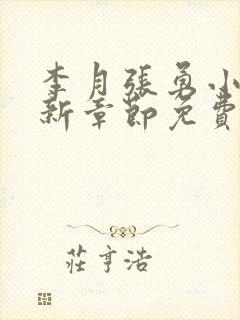 李月張勇小
新章節免費
莊亨浩